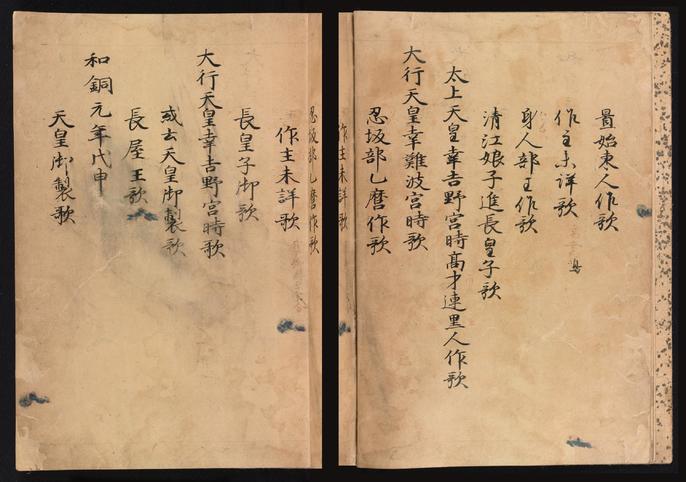 置始東人作歌
作主未詳歌
身人部王作歌
清江娘子進長皇子歌
太上天皇幸吉野宮時高市連黒人作歌
大行天皇幸難波宮時歌
忍坂部乙麿作歌
作主未詳歌
忍坂部乙麿作歌
作主未詳歌
長皇子御歌
大行天皇幸吉野宮時歌
或云天皇御製歌
長屋王歌
和銅元年戊申
天皇御製歌